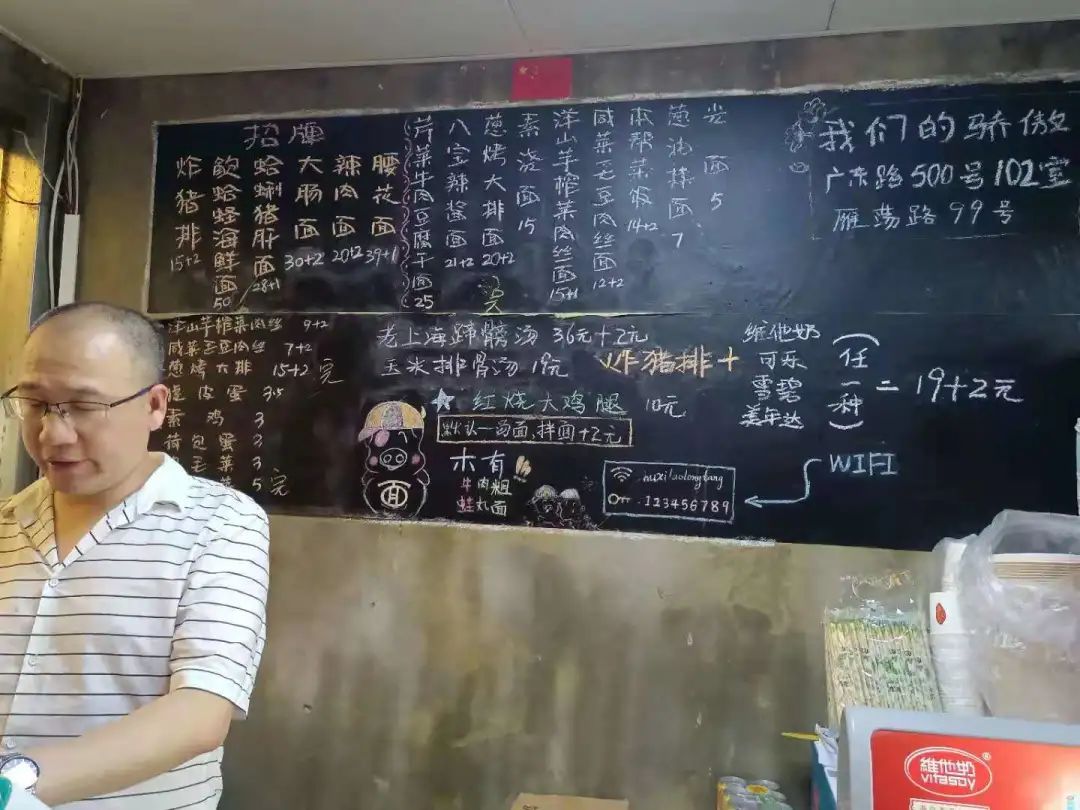 招牌
炸猪排 15+2
蛤 海鲜面 50
蛤蜊猪肝面 28+1
大肠面 30+2
辣肉面 20+2
腰花面 39+1
芹菜牛肉豆腐干面 25
八宝辣酱面 21+2
葱烤大排面 20+2 完
素浇面 15
洋山芋榨菜肉丝面 15+1
咸菜毛豆肉丝面 12+2
本帮菜饭 14+2
葱油拌面 7
光面 5
我们的骄傲
广东路500号102室
雁荡路99号
洋山芋榨菜肉丝 9+2
咸菜毛豆肉丝 7+2
葱烤大排 15+2 完
虎皮蛋 3.5
素鸡 3
荷包蛋 3
毛菜 3
5 完
老上海蹄髈汤 36元+2元
玉米排骨汤 19元
☆ 红烧大鸡腿 10元
默认一两面,拌面+2元
面
木有!!
牛肉粗
蛙丸面
炸猪排+
维他奶
可乐
雪碧
美年达
(任一种)
=19+2元
WIFI
huxilaolongtang
123456789
維他奶®
vitasoy